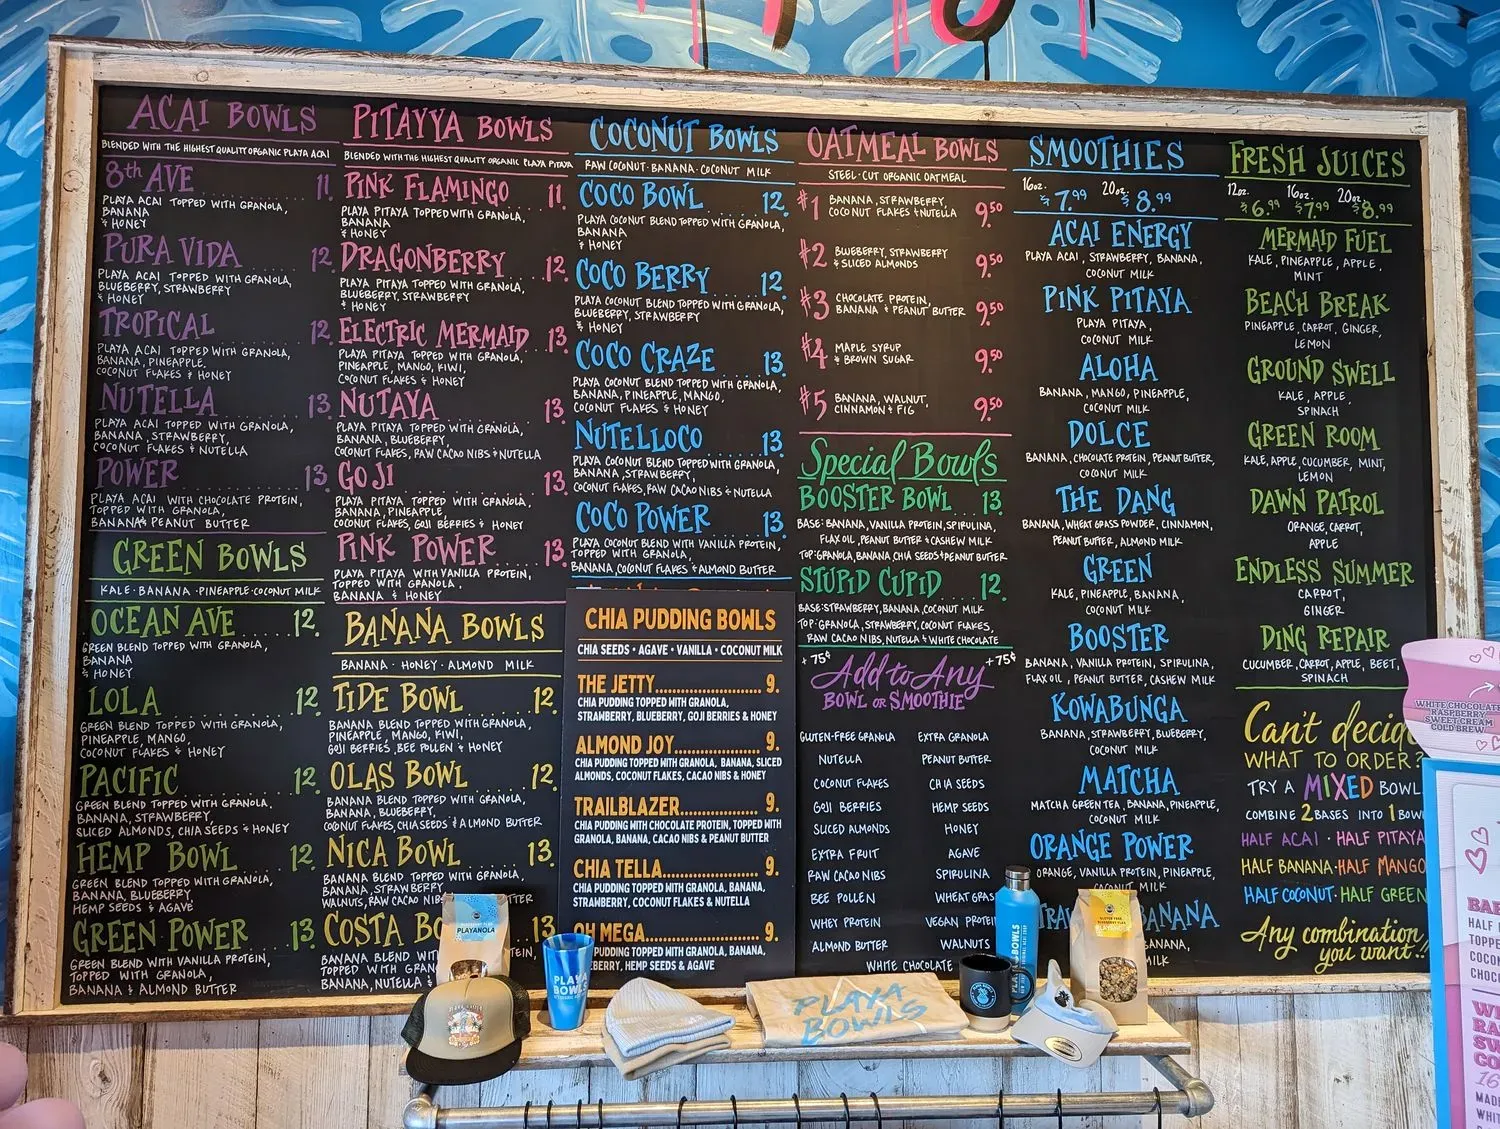 ACAI BOWLS
BLENDED WITH THE HIGHEST QUALITY ORGANIC PLAYA ACAI
8th AVE 11.
PLAYA ACAI TOPPED WITH GRANOLA,
BANANA
& HONEY
PURA VIDA 12.
PLAYA ACAI TOPPED WITH GRANOLA,
BLUEBERRY, STRAWBERRY
& HONEY
TROPICAL 12.
PLAYA ACAI TOPPED WITH GRANOLA,
BANANA, PINEAPPLE,
COCONUT FLAKES & HONEY
NUTELLA 13.
PLAYA ACAI TOPPED WITH GRANOLA,
BANANA, STRAWBERRY,
COCONUT FLAKES & NUTELLA
POWER 13.
PLAYA ACAI WITH CHOCOLATE PROTEIN,
TOPPED WITH GRANOLA,
BANANA & PEANUT BUTTER
GREEN BOWLS
KALE · BANANA · PINEAPPLE · COCONUT MILK
OCEAN AVE 12.
GREEN BLEND TOPPED WITH GRANOLA,
BANANA
& HONEY
LOLA 12.
GREEN BLEND TOPPED WITH GRANOLA,
PINEAPPLE, MANGO,
COCONUT FLAKES & HONEY
PACIFIC 12.
GREEN BLEND TOPPED WITH GRANOLA,
BANANA, STRAWBERRY,
SLICED ALMONDS, CHIA SEEDS & HONEY
HEMP BOWL 12.
GREEN BLEND TOPPED WITH GRANOLA,
BANANA, BLUEBERRY,
HEMP SEEDS & AGAVE
GREEN POWER 13
GREEN BLEND WITH VANILLA PROTEIN,
TOPPED WITH GRANOLA,
BANANA & ALMOND BUTTER
PITAYYA BOWLS
BLENDED WITH THE HIGHEST QUALITY ORGANIC PLAYA PITAYA
PINK FLAMINGO 11.
PLAYA PITAYA TOPPED WITH GRANOLA,
BANANA
& HONEY
DRAGONBERRY 12.
PLAYA PITAYA TOPPED WITH GRANOLA,
BLUEBERRY, STRAWBERRY
& HONEY
ELECTRIC MERMAID 13.
PLAYA PITAYA TOPPED WITH GRANOLA,
PINEAPPLE, MANGO, KIWI,
COCONUT FLAKES & HONEY
NUTAYA 13.
PLAYA PITAYA TOPPED WITH GRANOLA,
BANANA, BLUEBERRY,
COCONUT FLAKES, RAW CACAO NIBS & NUTELLA
GOJI 13.
PLAYA PITAYA TOPPED WITH GRANOLA,
BANANA, PINEAPPLE,
COCONUT FLAKES, GOJI BERRIES & HONEY
PINK POWER 13.
PLAYA PITAYA WITH VANILLA PROTEIN,
TOPPED WITH GRANOLA,
BANANA & HONEY
BANANA BOWLS
BANANA · HONEY · ALMOND MILK
TIDE BOWL 12.
BANANA BLEND TOPPED WITH GRANOLA,
PINEAPPLE, MANGO, KIWI,
GOJI BERRIES, BEE POLLEN & HONEY
OLAS BOWL 12.
BANANA BLEND TOPPED WITH GRANOLA,
BANANA, BLUEBERRY,
COCONUT FLAKES, CHIA SEEDS & ALMOND BUTTER
NICA BOWL 13.
BANANA BLEND TOPPED WITH GRANOLA,
BANANA, STRAWBERRY
WALNUTS, RAW CACAO NIBS
COSTA 13
BANANA BLEND
TOPPED WITH
BANANA, NUTELLA &
COCONUT BOWLS
RAW COCONUT · BANANA · COCONUT MILK
COCO BOWL 12.
PLAYA COCONUT BLEND TOPPED WITH GRANOLA,
BANANA
& HONEY
COCO BERRY 12.
PLAYA COCONUT BLEND TOPPED WITH GRANOLA,
BLUEBERRY, STRAWBERRY
& HONEY
COCO CRAZE 13.
PLAYA COCONUT BLEND TOPPED WITH GRANOLA,
BANANA, PINEAPPLE, MANGO,
COCONUT FLAKES & HONEY
NUTELLOCO 13.
PLAYA COCONUT BLEND TOPPED WITH GRANOLA,
BANANA, STRAWBERRY,
COCONUT FLAKES, RAW CACAO NIBS & NUTELLA
COCO POWER 13.
PLAYA COCONUT BLEND WITH VANILLA PROTEIN,
TOPPED WITH GRANOLA,
BANANA, COCONUT FLAKES & ALMOND BUTTER
CHIA PUDDING BOWLS
CHIA SEEDS • AGAVE • VANILLA • COCONUT MILK
THE JETTY........................ 9.
CHIA PUDDING TOPPED WITH GRANOLA,
STRAWBERRY, BLUEBERRY, GOJI BERRIES & HONEY
ALMOND JOY.................... 9.
CHIA PUDDING TOPPED WITH GRANOLA, BANANA, SLICED
ALMONDS, COCONUT FLAKES, CACAO NIBS & HONEY
TRAILBLAZER................... 9.
CHIA PUDDING WITH CHOCOLATE PROTEIN, TOPPED WITH
GRANOLA, BANANA, CACAO NIBS & PEANUT BUTTER
CHIA TELLA....................... 9.
CHIA PUDDING TOPPED WITH GRANOLA, BANANA,
STRAWBERRY, COCONUT FLAKES & NUTELLA
OH MEGA.......................... 9.
PUDDING TOPPED WITH GRANOLA, BANANA,
HEMP SEEDS & AGAVE
OATMEAL BOWLS
STEEL-CUT ORGANIC OATMEAL
#1 BANANA, STRAWBERRY, 9.50
COCONUT FLAKES & NUTELLA
#2 BLUEBERRY, STRAWBERRY 9.50
& SLICED ALMONDS
#3 CHOCOLATE PROTEIN, 9.50
BANANA & PEANUT BUTTER
#4 MAPLE SYRUP 9.50
& BROWN SUGAR
#5 BANANA, WALNUT, 9.50
CINNAMON & FIG
Special Bowls
BOOSTER BOWL 13.
BASE: BANANA, VANILLA PROTEIN, SPIRULINA,
FLAX OIL, PEANUT BUTTER & CASHEW MILK
TOP: GRANOLA, BANANA, CHIA SEEDS & PEANUT BUTTER
STUPID CUPID 12.
BASE: STRAWBERRY, BANANA, COCONUT MILK
TOP: GRANOLA, STRAWBERRY, COCONUT FLAKES,
RAW CACAO NIBS, NUTELLA & WHITE CHOCOLATE
+ 75¢ Add to Any + 75¢
BOWL OR SMOOTHIE
GLUTEN-FREE GRANOLA EXTRA GRANOLA
NUTELLA PEANUT BUTTER
COCONUT FLAKES CHIA SEEDS
GOJI BERRIES HEMP SEEDS
SLICED ALMONDS HONEY
EXTRA FRUIT AGAVE
RAW CACAO NIBS SPIRULINA
BEE POLLEN WHEAT GRASS
WHEY PROTEIN VEGAN PROTEIN
ALMOND BUTTER WALNUTS
WHITE CHOCOLATE
SMOOTHIES
16oz. 7.99 20oz. 8.99
ACAI ENERGY
PLAYA ACAI, STRAWBERRY, BANANA,
COCONUT MILK
PINK PITAYA
PLAYA PITAYA,
COCONUT MILK
ALOHA
BANANA, MANGO, PINEAPPLE,
COCONUT MILK
DOLCE
BANANA, CHOCOLATE PROTEIN, PEANUT BUTTER,
COCONUT MILK
THE DANG
BANANA, WHEAT GRASS POWDER, CINNAMON,
PEANUT BUTTER, ALMOND MILK
GREEN
KALE, PINEAPPLE, BANANA,
COCONUT MILK
BOOSTER
BANANA, VANILLA PROTEIN, SPIRULINA,
FLAX OIL, PEANUT BUTTER, CASHEW MILK
KOWABUNGA
BANANA, STRAWBERRY, BLUEBERRY,
COCONUT MILK
MATCHA
MATCHA GREEN TEA, BANANA, PINEAPPLE,
COCONUT MILK
ORANGE POWER
ORANGE, VANILLA PROTEIN, PINEAPPLE,
COCONUT MILK
BANANA
BANANA,
MILK
FRESH JUICES
12oz. 6.99 16oz. 7.99 20oz. 8.99
MERMAID FUEL
KALE, PINEAPPLE, APPLE,
MINT
BEACH BREAK
PINEAPPLE, CARROT, GINGER,
LEMON
GROUND SWELL
KALE, APPLE,
SPINACH
GREEN ROOM
KALE, APPLE, CUCUMBER, MINT,
LEMON
DAWN PATROL
ORANGE, CARROT,
APPLE
ENDLESS SUMMER
CARROT,
GINGER
DING REPAIR
CUCUMBER, CARROT, APPLE, BEET,
SPINACH
Can't decid
WHAT TO ORDER?
TRY A MIXED BOWL
COMBINE 2 BASES INTO 1 BOWL
HALF ACAI · HALF PITAYA
HALF BANANA · HALF MANGO
HALF COCONUT · HALF GREEN
Any combination
you want!!
WHITE CHOCOLATE
RASPBERRY
SWEET CREAM
COLD BREW
HALF
TOPPE
COCON
CHOC
16
MADE
WHIT
PLAYANOLA
PLAYA
BOWLS
PLAYA
BOWLS
BOWLS